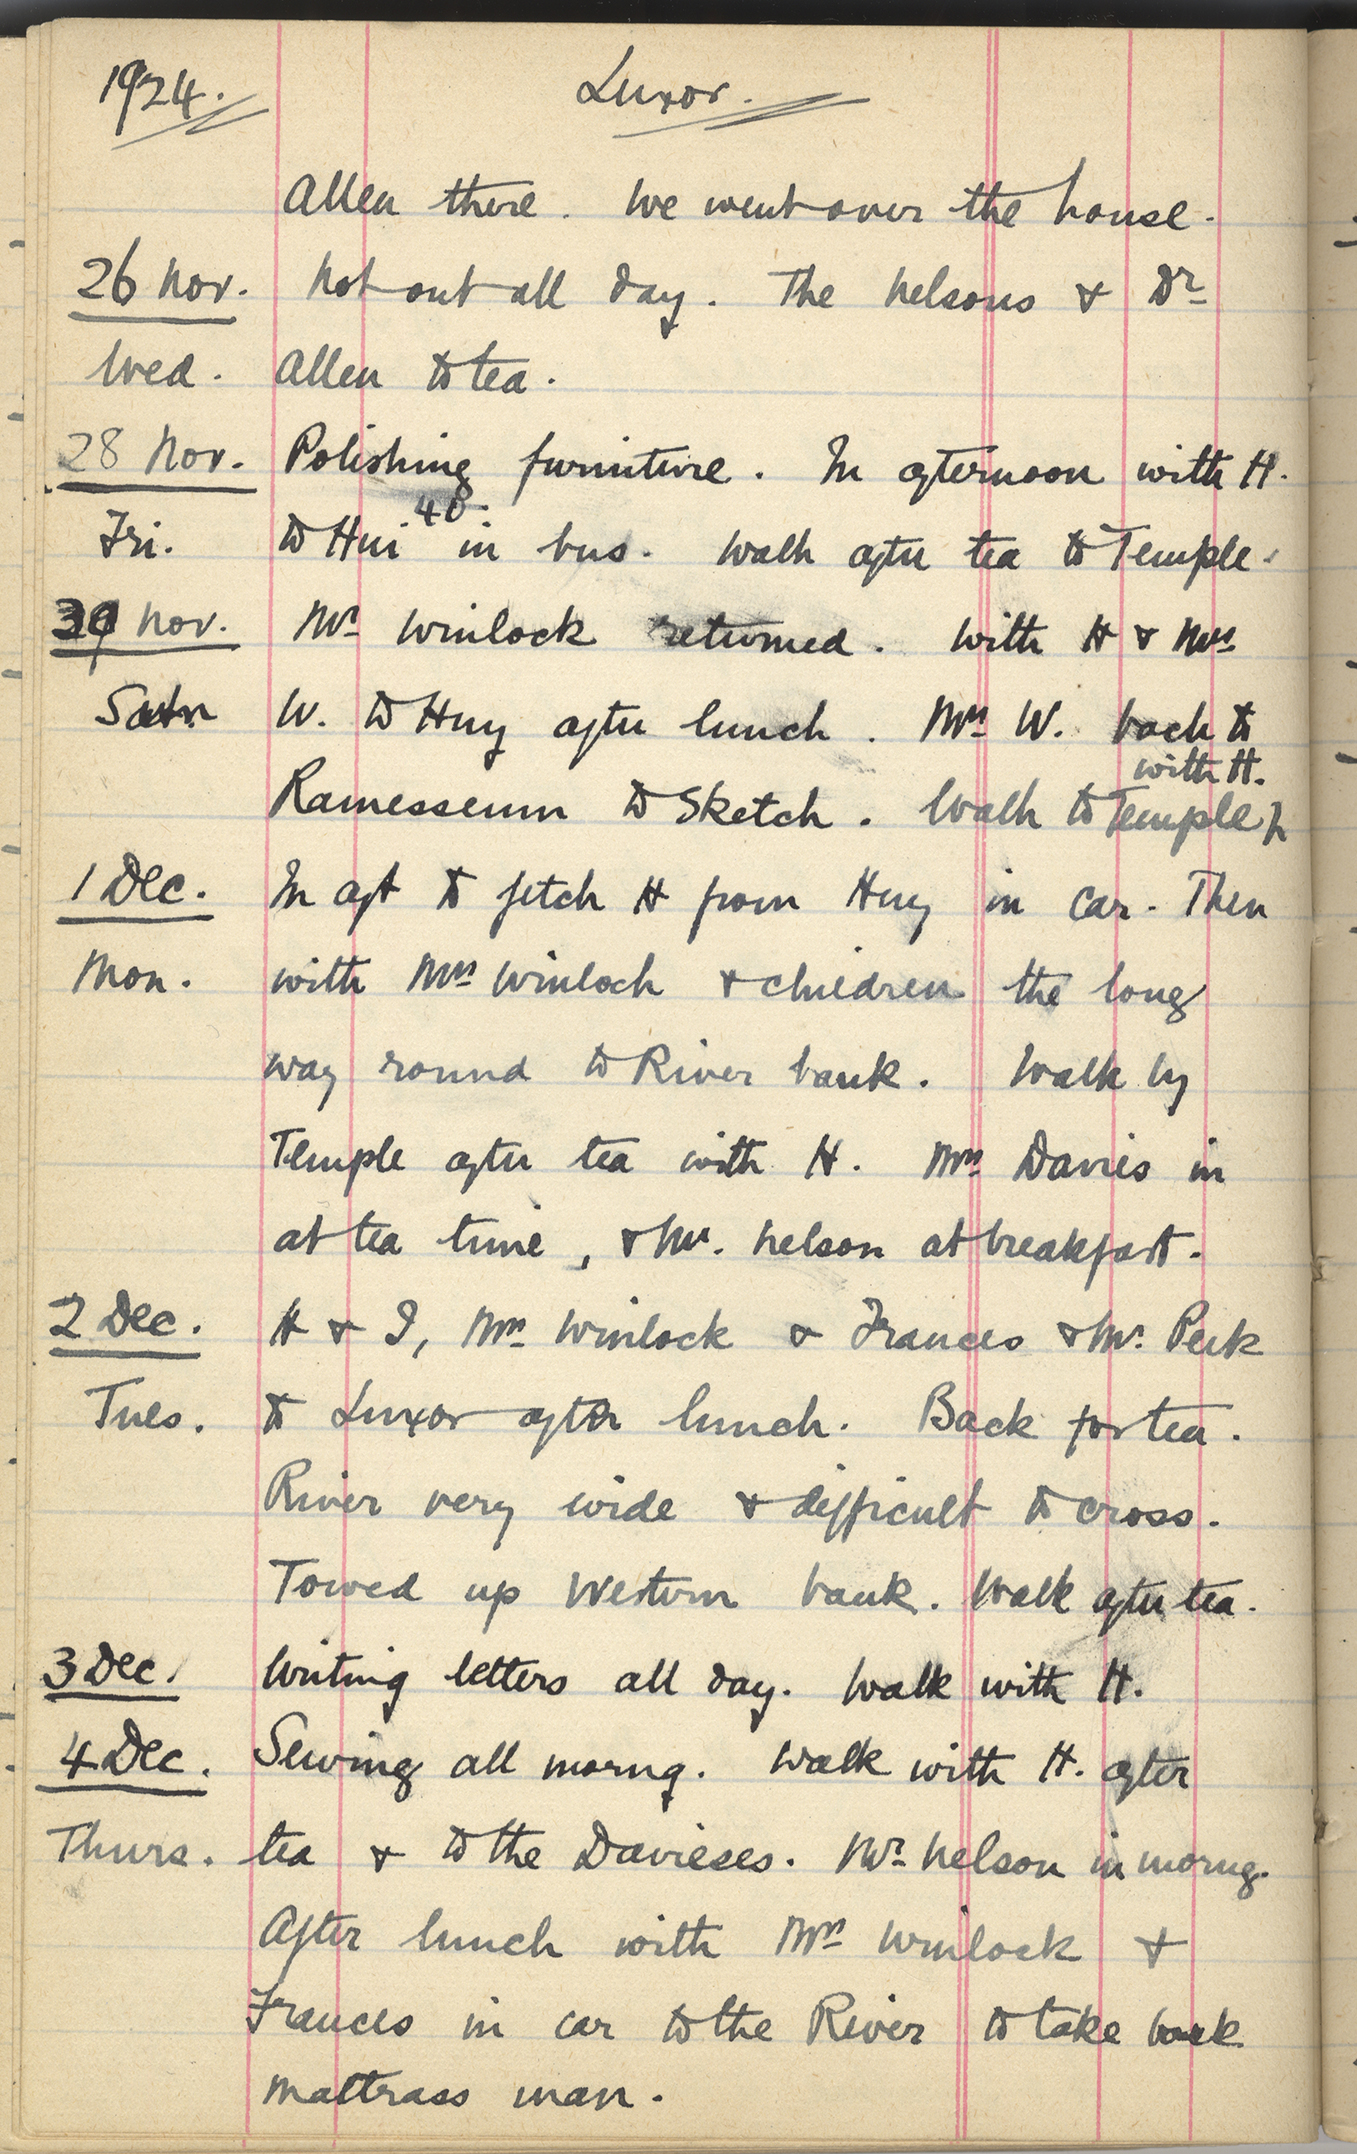 1924. Luxor.
Allen there. We went over the house.
26 Nov. Not out all day. The Nelsons & Dr
Wed. Allen to tea.
28 Nov. Polishing furniture. In afternoon with H.
40.
Fri. to Hui in bus. Walk after tea to Temple.
Nov. Mr Winlock returned. With H & Mrs
Satn W. to Huy after lunch. Mrs W. back to
with H.
Ramesseum to sketch. Walk to Temple
1 Dec. In aft to fetch H from Huy in car. Then
Mon. with Mrs Winlock & children the long
way round to River bank. Walk by
Temple after tea with H. Mrs Davies in
at tea time, & Mr. Nelson at breakfast.
2 Dec. H & I, Mrs Winlock & Frances & Mr. Peck
Tues. to Luxor after lunch. Back for tea.
River very wide & difficult to cross.
Towed up Western bank. Walk after tea.
3 Dec. Writing letters all day. Walk with H.
4 Dec. Sewing all morng. Walk with H. after
Thurs. tea & to the Davieses. Mr Nelson in morng.
After lunch with Mrs Winlock &
Frances in car to the River to take back
mattrass man.